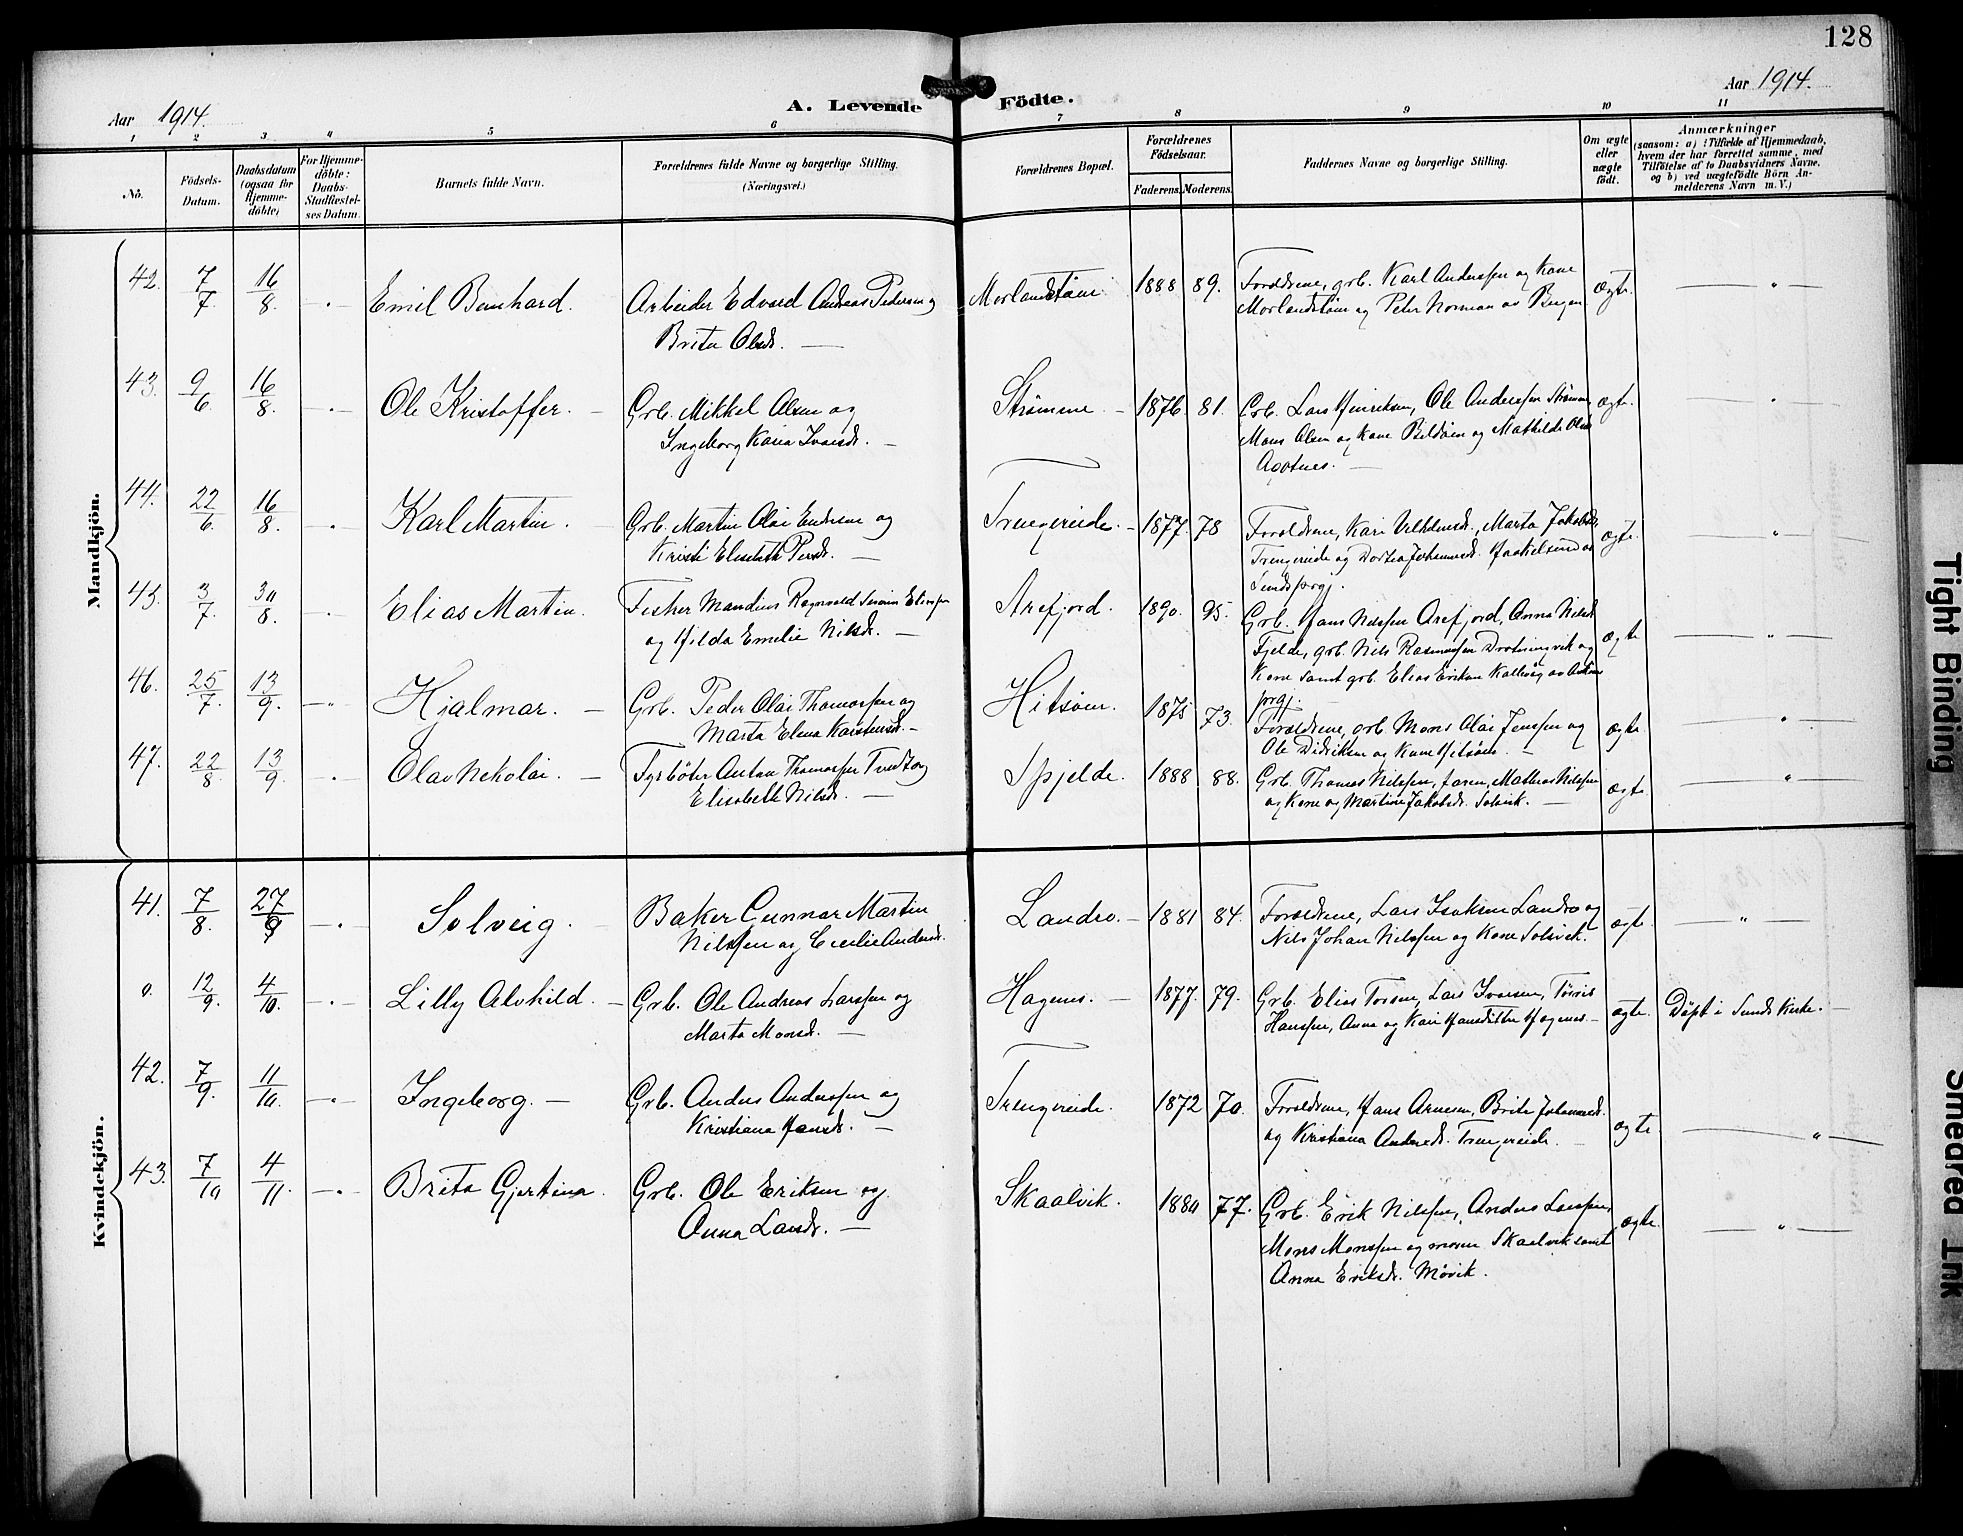 128
Aar 1914.
A. Levende Födte.
Aar 1914.
1 2 3 4 5 6 7 8 9 10 11
No.
Födsels-Datum.
Daabsdatum (ogsaa for Hjemme-döbte)
For Hjemme-döbte: Daabs-Stadfæstelses Datum.
Barnets fulde Navn.
Forældrenes fulde Navne og borgerlige Stilling.
(Næringsvei.)
Forældrenes Bopæl.
Forældrenes Födselsaar.
Faderens. Moderens.
Faddernes Navne og borgerlige Stilling.
Om ægte eller uægte født.
Anmærkninger
(saasom: a) i Tilfælde af Hjemmedaab, hvem der har forrettet samme, med Tilföielse af to Daabsvidners Navne, og b) ved uægtefödte Börn Anmelderens Navn m. V.)
Mandkjön.
42. 7/7 16/8. Emil Bernhard. Arbeider Edvard Andreas Pedersen og
Brita Olsdr.
Morlandstøen 1888 89. Forældrene, grb. Karl Anderssen og Kone
Morlandstøen og Peter Norman av Bergen
ægte.
43. 9/6 16/8. Ole Kristoffer. Grb. Mikkel Olsen og
Ingeborg Karia Ivarsdr.
Strømme 1876. 81. Grb. Lars Henriksen, Ole Anderssen Strømme,
Mons Olsen og Kone Bildøen og Mathilde Olsdr
Agotnes.
ægte.
44. 22/6. 16/8. Karl Martin. Grb. Martin Olai Endresen og
Kristi Elisabeth Persdr.
Trengereide. 1877. 78 Forældrene, Kari Marta Jakobsdr
Trengereide og Dortea Johannesdr.
Sunds prgj.
ægte.
45. 3/7. 30/8. Elias Martin. Fisker Mandius Ragnvald Severin
og Hilda Emelie Nilsdr.
Arefjord. 1890. 95. Grb. Hans Nilssen Arefjord, Anna Nilsdr
Fjelde, grb. Nils Rasmussen Drotningvik og
Kone samt grb. Elias Eriksen
prgj.
ægte
46. 25/7. 13/9. Hjalmar. Grb. Peder Olai Thomassen og
Marta Elena Karstensdr.
Hitsøen. 1875 73. Forældrene, grb. Mons Olai Jenssen og
Ole Didriksen og Kone Hitsøen.
ægte
47. 22/8 13/9. Olav Nekolai. Fyrbøter Anton Thomassen Tveit og
Elisabeth Nilsdr.
Spjelde. 1888 88. Grb. Thomas Nilssen, faren, Mathias Nilssen
og Kone og Martine Jakobsdr. Solsvik.
ægte.
Kvindekjön.
41. 7/8. 27/9 Solveig. Baker Gunnar Martin
Nilssen og Cecilie Andersdr.
Landro. 1881 84. Forældrene, Lars Isaksen Landro og
Nils Johan Nilssen og Kone Solsvik.
ægte.
0. 12/9. 4/10. Lilly Alvhild. Grb. Ole Andreas Larssen og
Marta Monsd.
Hagenes. 1877. 79. Grb. Elias Torsen, Lars Ivarsen, Tørris
Hanssen, Anna og Kari Hansdøttre Hagenes.
ægte. Døpt i Sunds Kirke.
42. 7/9. 11/10. Ingeborg. Grb. Anders Anderssen og
Kristiana Hansdr.
Trengereide. 1872 70. Forældrene, Hans Arnesen, Brita Johannesdr.
og Kristiana Andersdr. Trengereide.
ægte
43. 7/10 4/11. Brita Gjertina. Grb. Ole Eriksen og
Anna Larsdr.
Skaalvik. 1880 77. Grb. Erik Nilssen, Anders Larssen,
Mons Monssen og moren Skaalvik samt
Anna Eriksdr. Møvik.
ægte.
Tight Binding
Smeared Ink